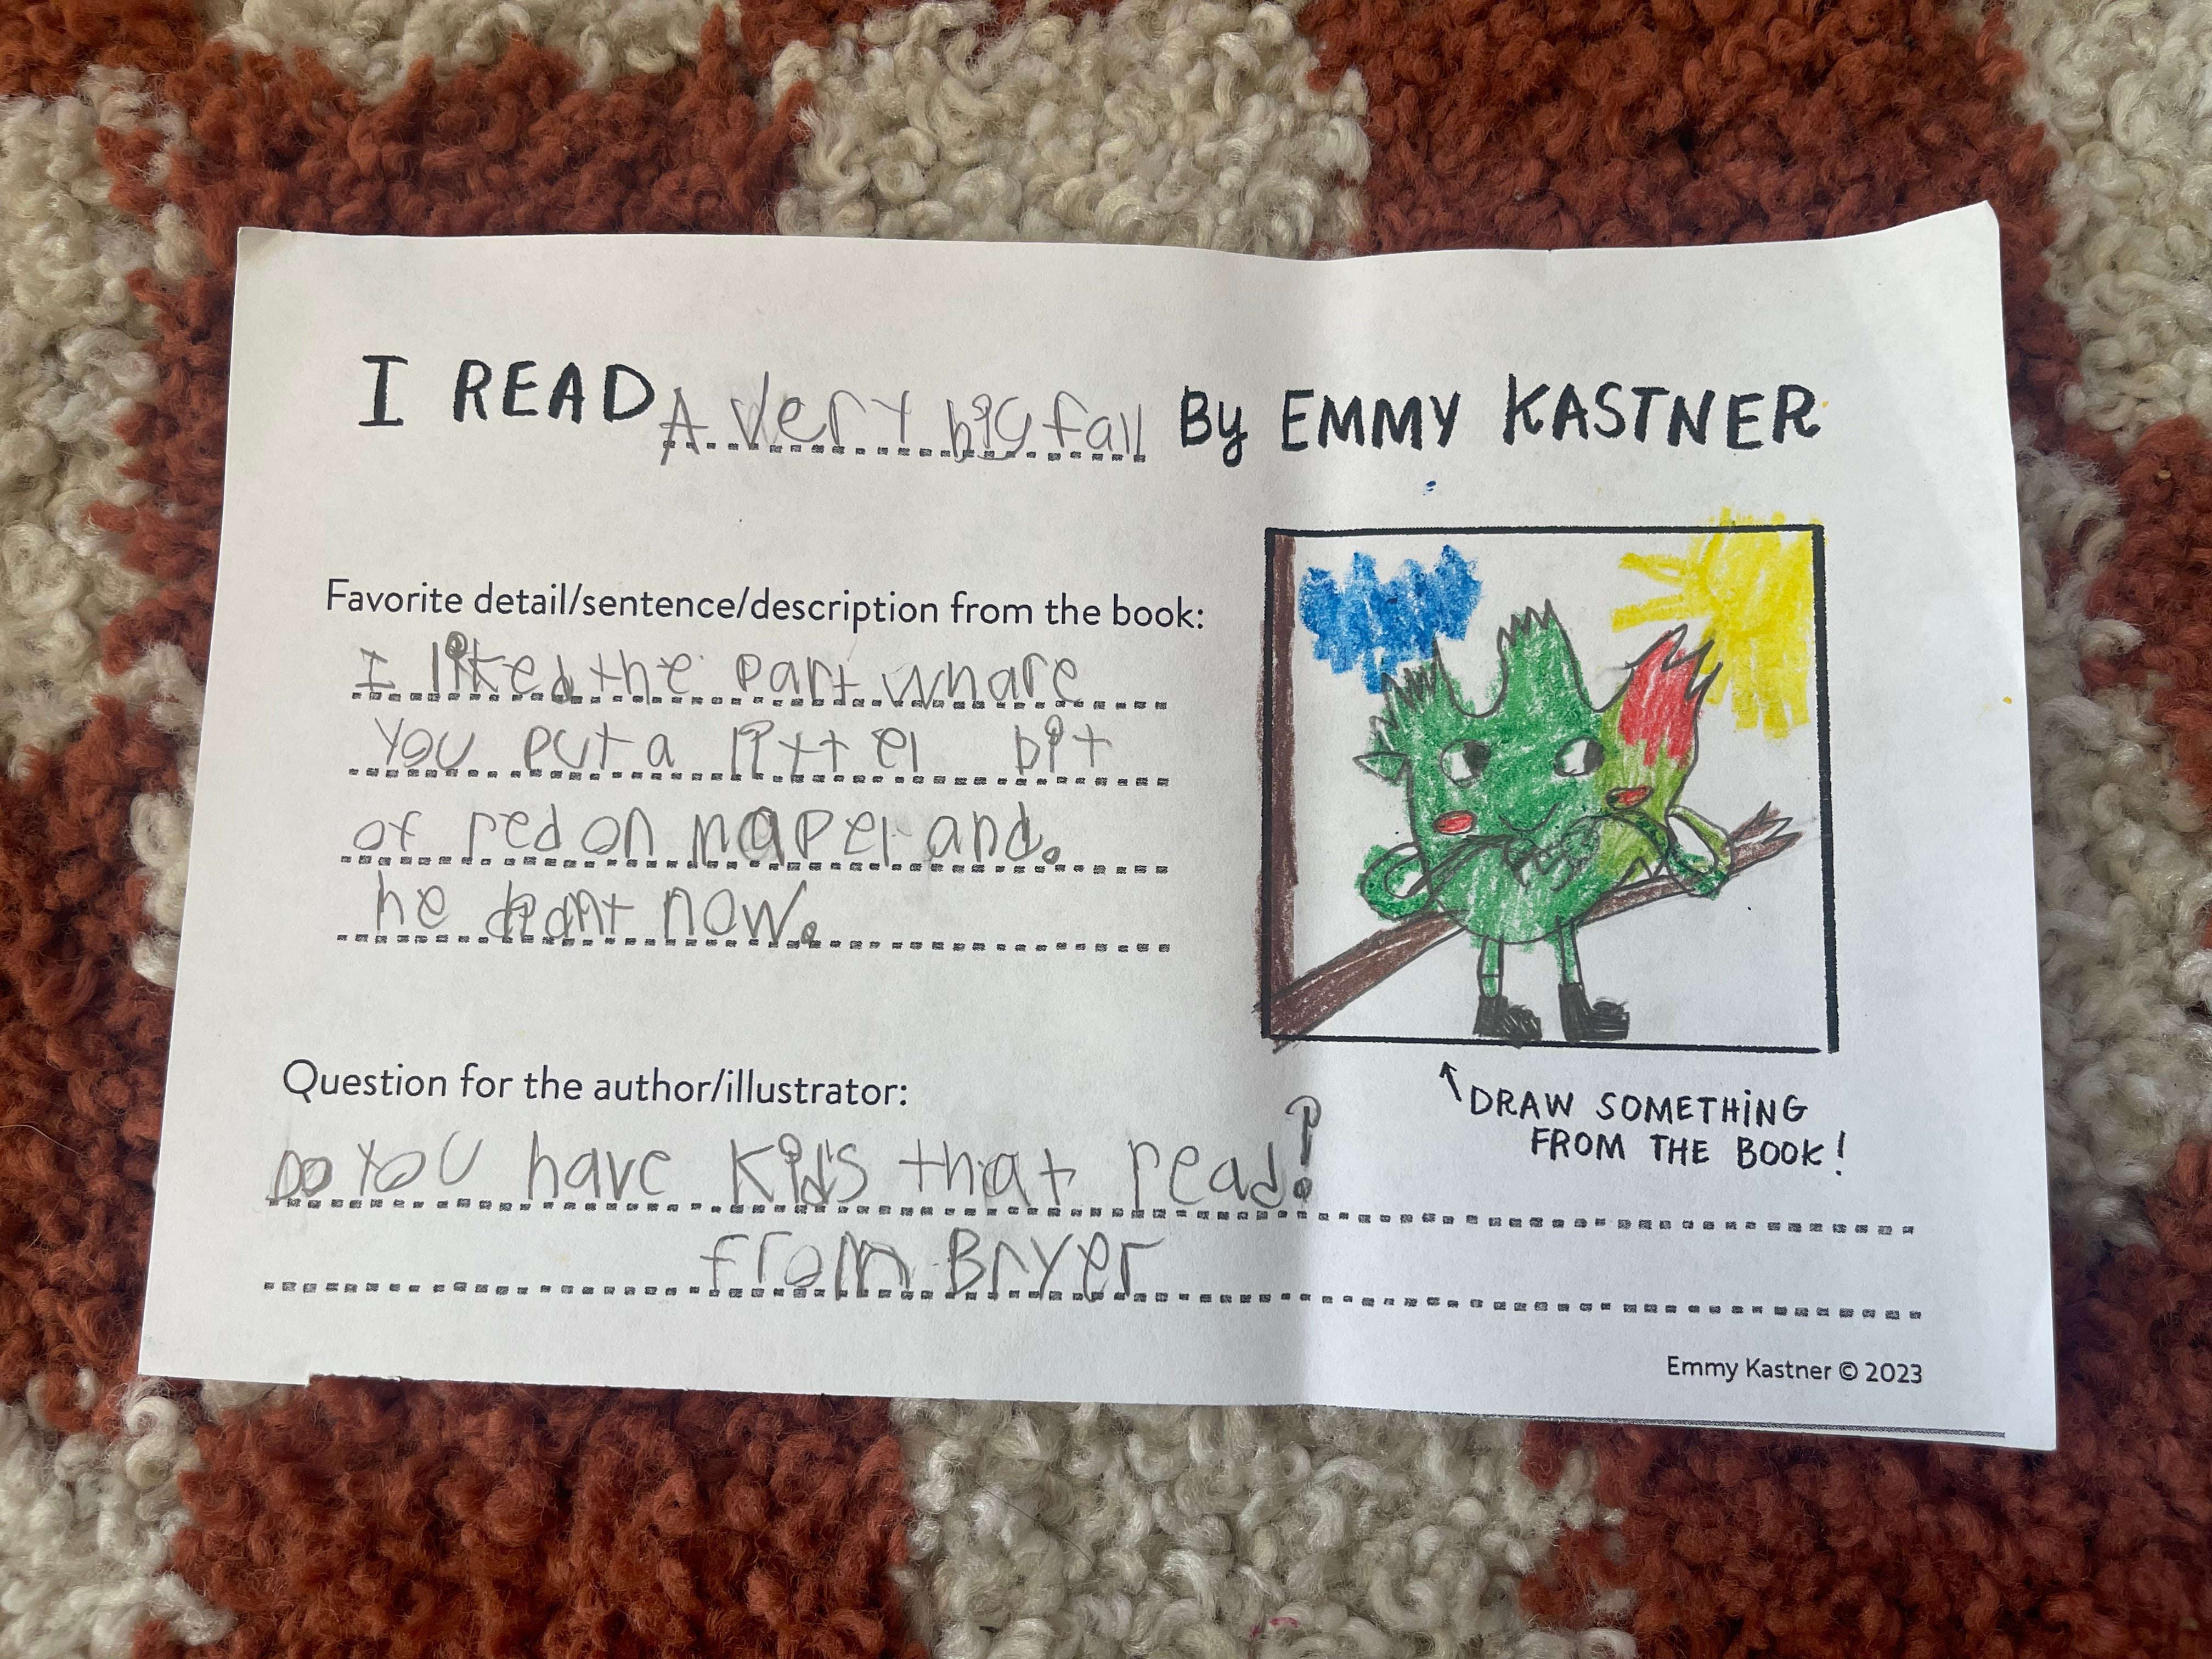 I READ A Very big fall By EMMY KASTNER
Favorite detail/sentence/description from the book:
I liked the part whare
You put a littel bit
of red on maPel and.
he didnt now.
DRAW SOMETHING
FROM THE BOOK!
Question for the author/illustrator:
Do You have Kids that read?
from Bryer
Emmy Kastner © 2023